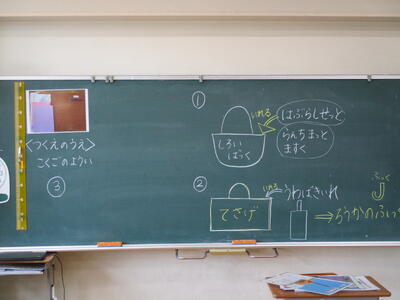 <つくえのうえ>
こくごのようい
③
①
いれる
はぶらしせっと
らんちまっと
ますく
しろい
ばっく
②
いれる
うわばきいれ
てさげ
ふっく
⇒ろうかのふっ